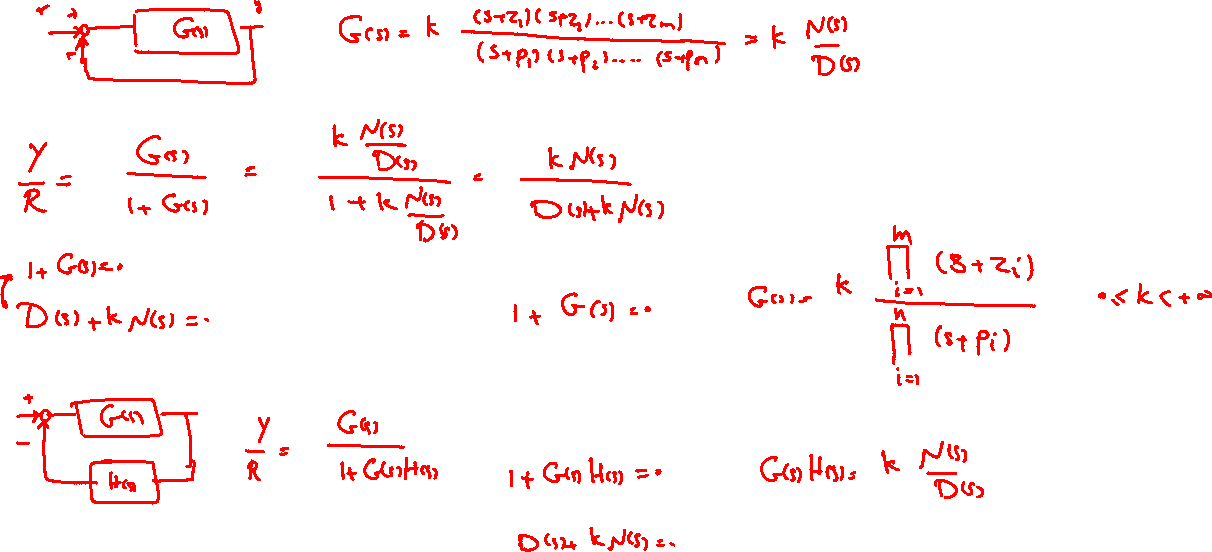 r + - G(s) y
G(s) = k (s+z₁)(s+z₂)...(s+zm) / (s+p₁)(s+p₂)....(s+pn) = k N(s)/D(s)
Y/R = G(s) / 1+G(s) = k N(s)/D(s) / 1+k N(s)/D(s) = k N(s) / D(s)+k N(s)
1+G(s)=0
D(s)+k N(s)=0
1+G(s)=0
G(s)= k ∏ i=1 m (s+zᵢ) / ∏ i=1 n (s+pᵢ) 0≤k<+∞
+ - G(s) H(s)
Y/R = G(s) / 1+G(s)H(s)
1+G(s)H(s)=0
G(s)H(s)= k N(s)/D(s)
D(s)+kN(s)=0